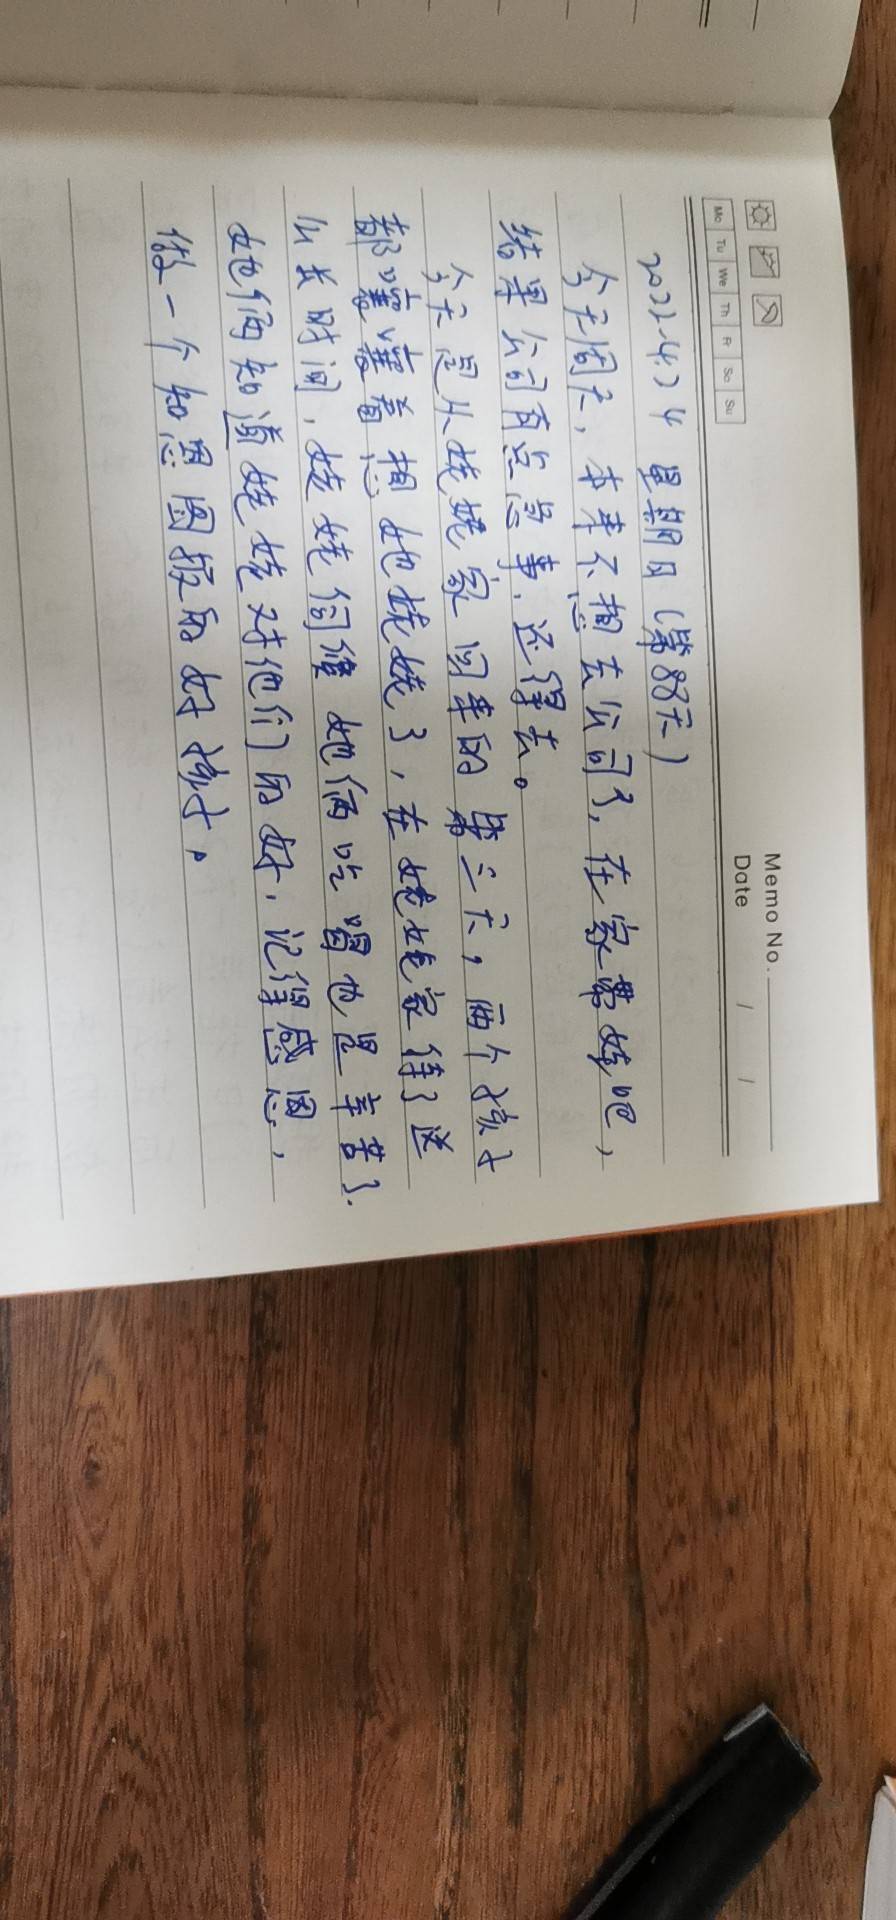 Memo No.
Mo Tu We Th Fr Sa Su
Date / /
2022.4.24 星期日(第88天)
今天周天,本来不想去公司了,在家带娃吧,
结果公司有点急事,还得去。
今天是从姥姥家回来的第三天,两个孩子
都嚷嚷着想她姥姥了,在姥姥家待了这
么长时间,姥姥伺候她俩吃喝也是辛苦了.
她俩知道姥姥对他们的好,记得感恩,
做一个知恩图报的好孩子。